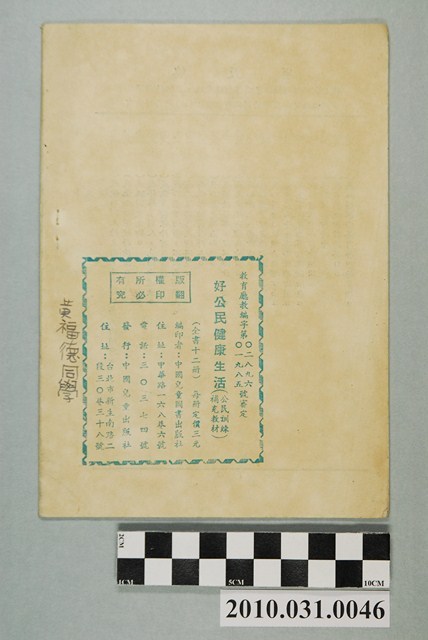 教育廳教編字第〇二八九六
〇一九八五號審定
好公民健康生活(公民訓練
補充教材)
(全書十二冊) 每冊定價三元
編印者：中國兒童圖書出版社
住址：中華路一六八巷六號
電話：三〇三七四號
發行：中國兒童出版社
住址：台北市新生南路二
段三〇巷三十八號
版權所有
翻印必究
黃福德同學
2CM
1CM
5CM
10CM
2010.031.0046